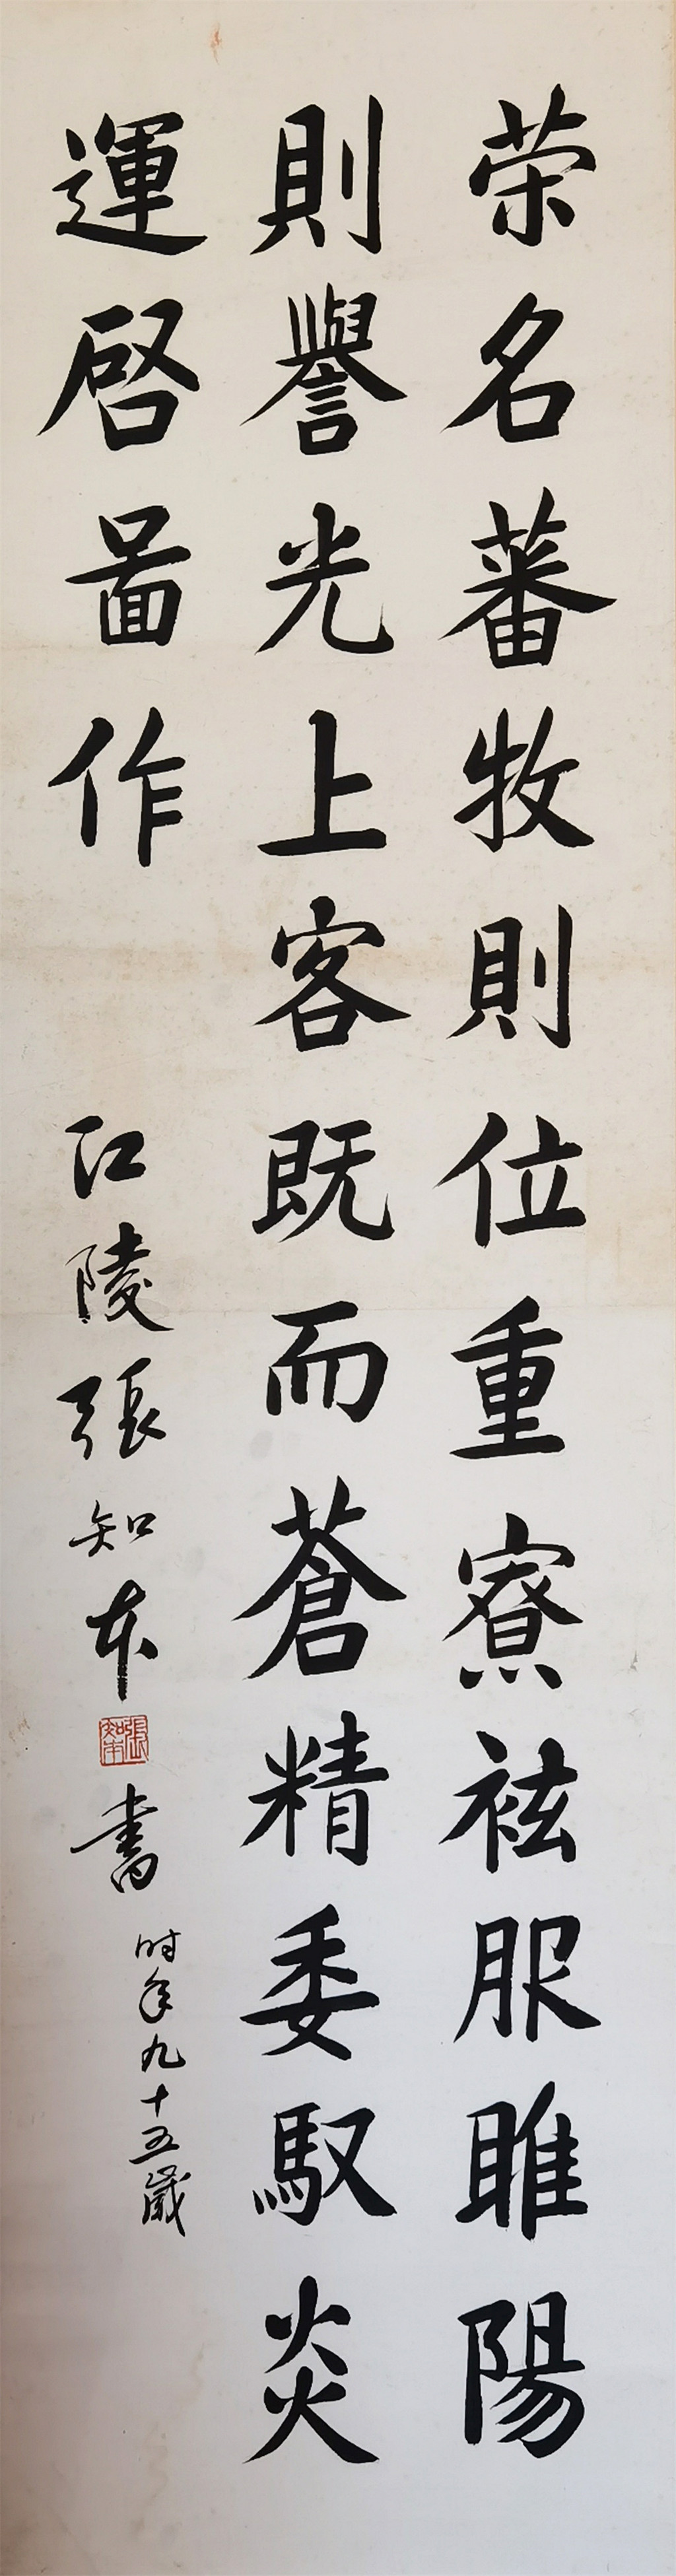 荣名蕃牧則位重寮袨服睢陽
則譽光上客既而蒼精委馭炎
運啓啚作
江陵張知本
張知本
書
时年九十五歲